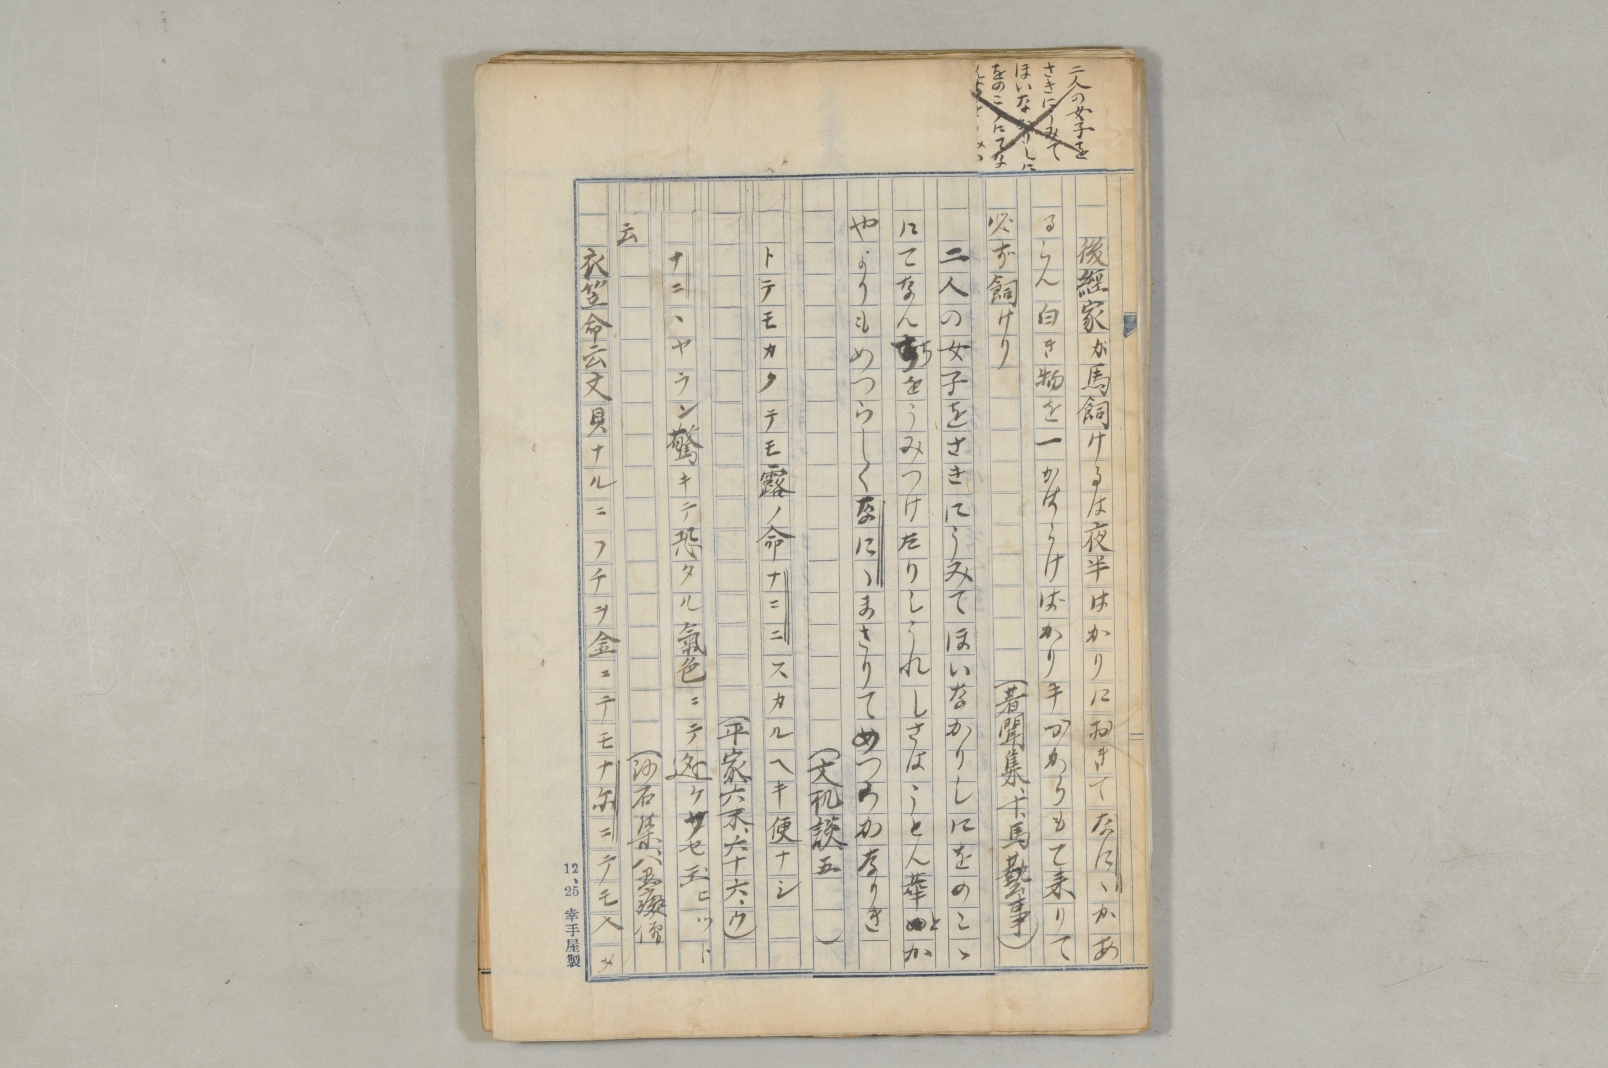 二人の女子を
さきにうみて
ほいなかりしに
をのこゝにてな
後經家が馬飼けるは夜半はかりにおきてなにゝかあ
るらん白き物を一かはらけばかり手づからもて来りて
必ず飼けり
(著聞集、十、馬藝事)
二人の女子をさきにうみてほいなかりしにをのこゝ
にてなんをうみつけたりしうれしさはうとん華とか
やよりもめつらしくなにゝまさりてめつらかなりき
(文机談五 )
トテモカクテモ露ノ命ナニニスカルヘキ便ナシ
(平家六末、六十六、ウ)
ナニヽヤラン驚キテ恐タル氣色ニテ逃ケサセ玉ヒツト
云
(沙石集、八
衣笠命云丈貝ナルニフチヲ金ニテモナ尓ニテモ
12、25 幸手屋製